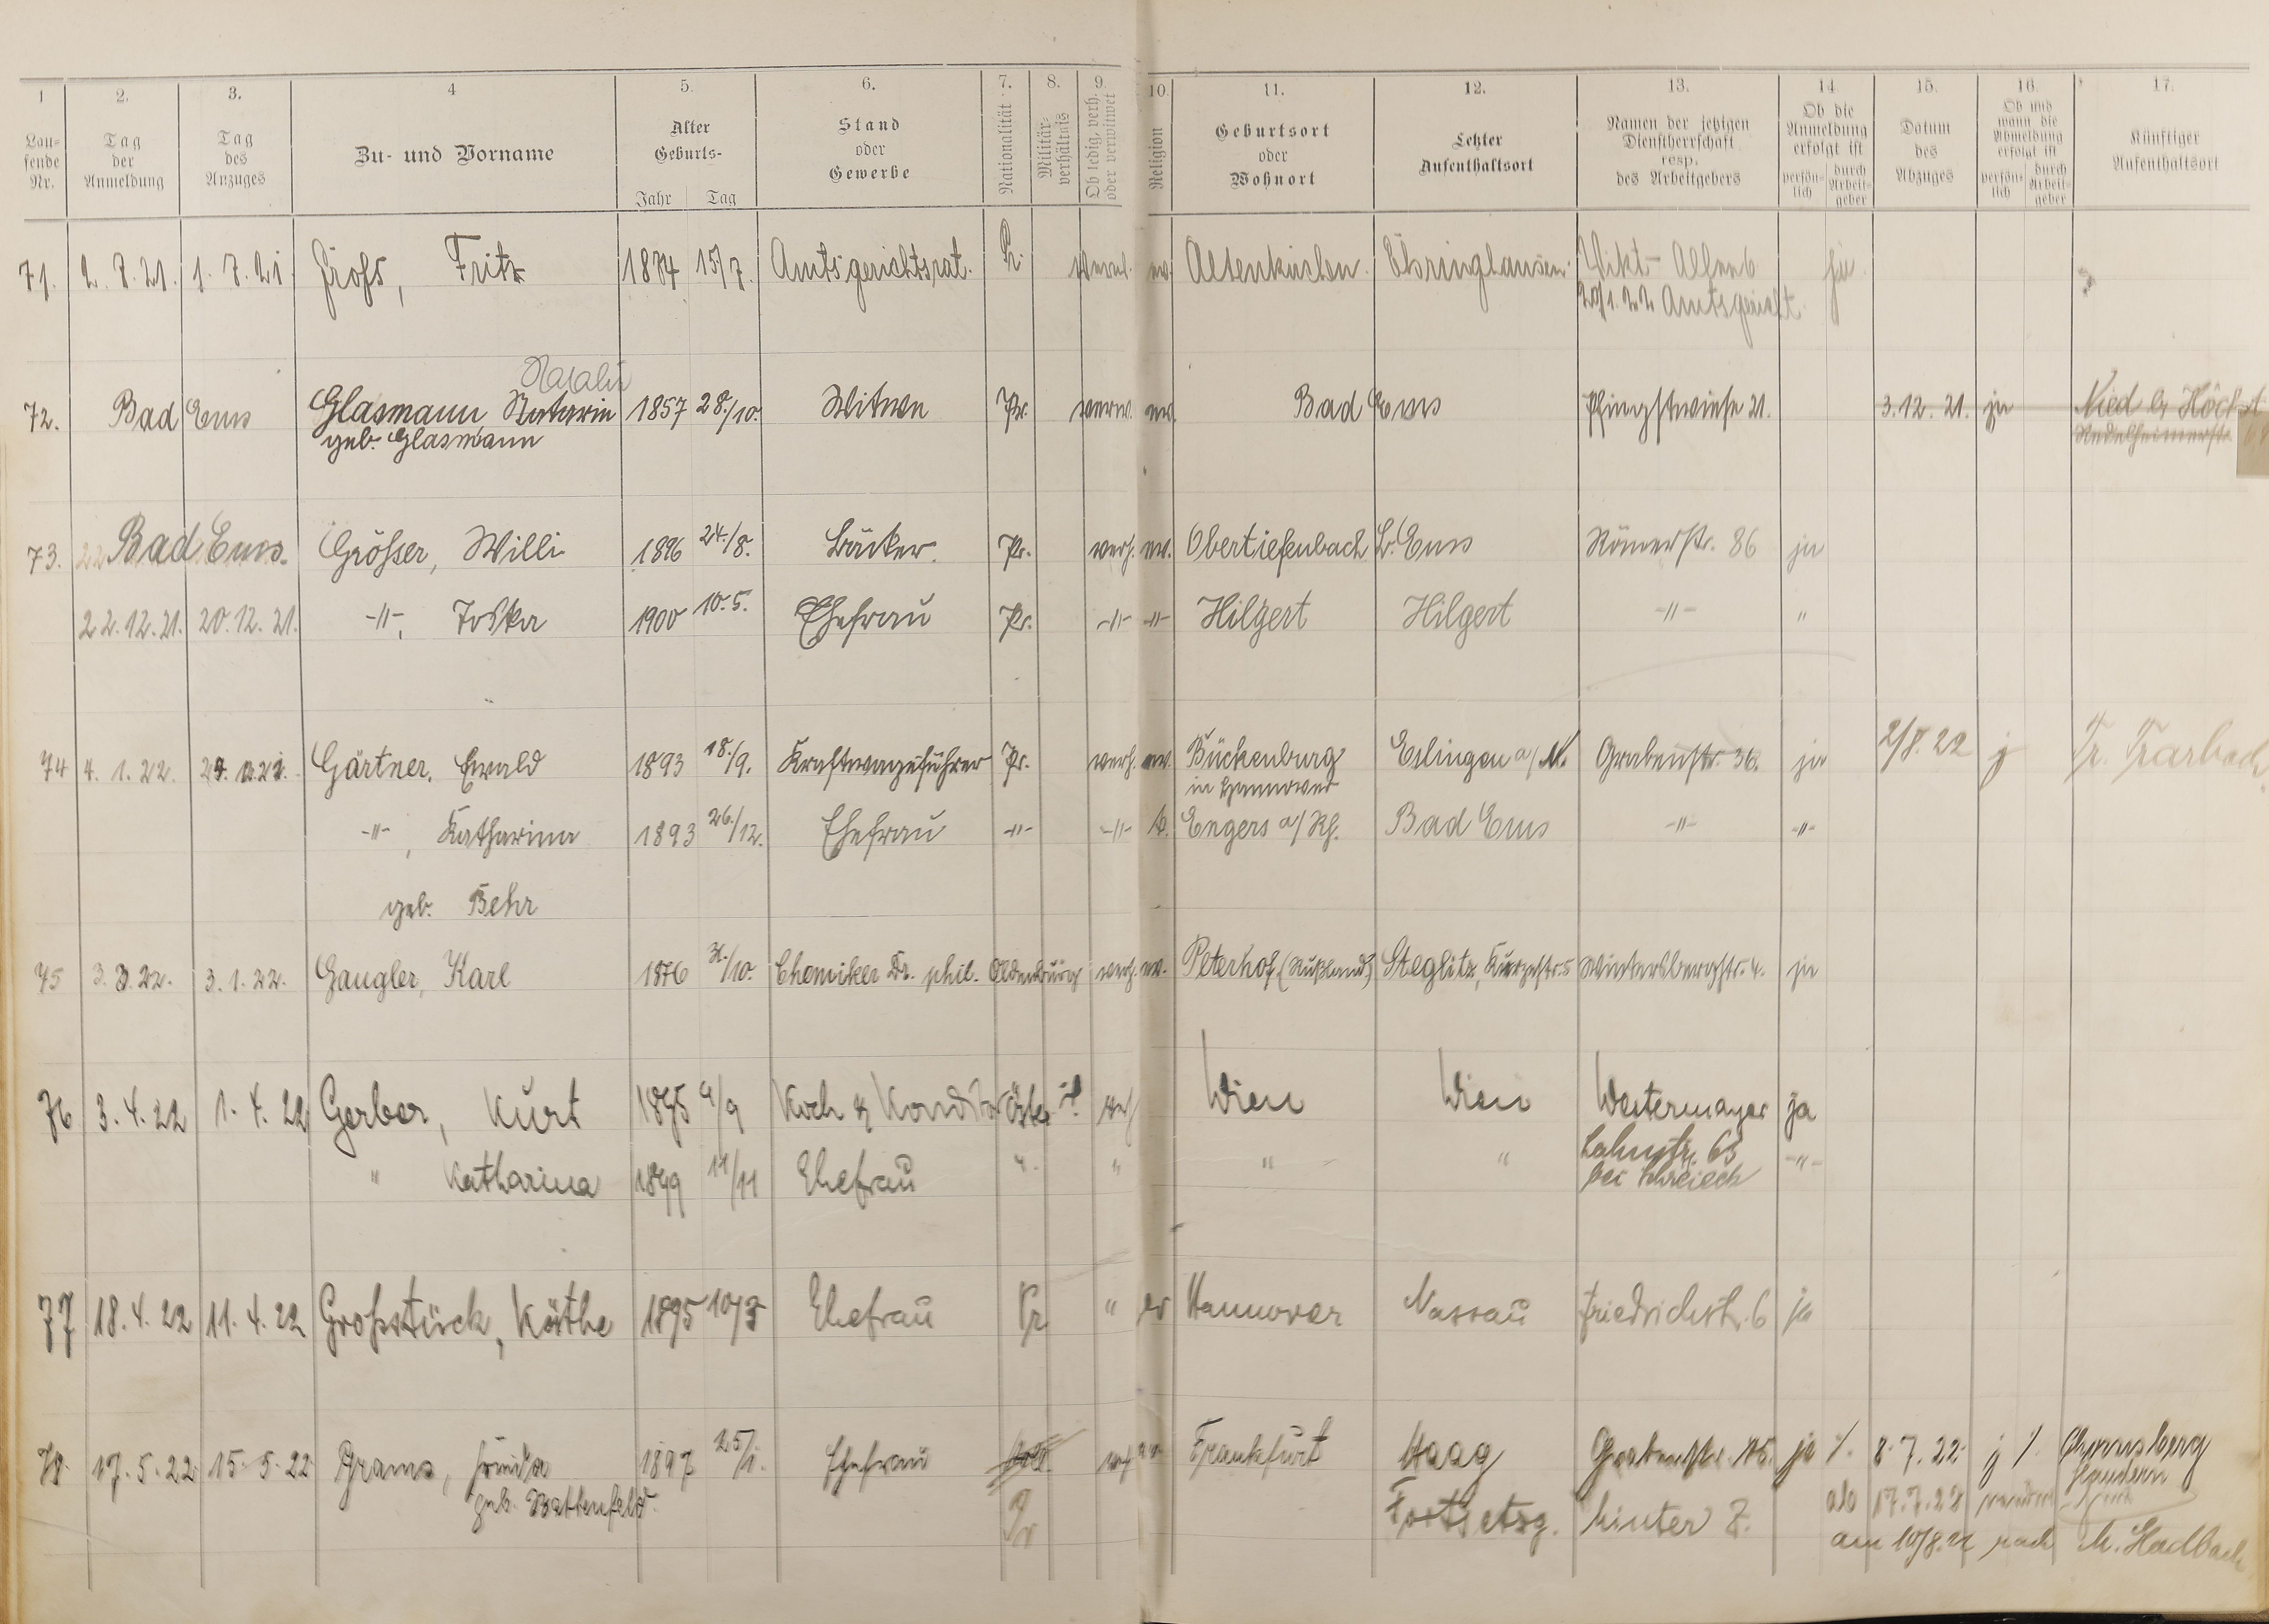 1 2. 3. 4 5. 6. 7. 8. 9. 10. 11. 12. 13. 14 15. 16. 17.
Lau-
fende
Nr.
Tag
der
Anmeldung
Tag
des
Anzuges
Zu- und Vorname
Alter
Geburts-
Jahr Tag
Stand
oder
Gewerbe
Nationalität
Militär-
verhältnis
Ob ledig, verh.
oder verwitwet
Religion
Geburtsort
oder
Wohnort
Letzter
Aufenthaltsort
Namen der jetzigen
Dienstherrschaft
resp.
des Arbeitgebers
Ob die
Anmeldung
erfolgt ist
persön-
lich
durch
Arbeit-
geber
Datum
des
Abzuges
Ob und
wann die
Abmeldung
erfolgt ist
persön-
lich
durch
Arbeit-
geber
Künftiger
Aufenthaltsort
71. 2. 7. 21. 1. 7. 21 Fritz 1874 15/7. Amtsgerichtsrat. Pr. verh. ev. Altenkirchen. Ehringhausen. Vikt- Allee 6 ja
20/1. 22 Amtsgericht.
Natalie
72. Bad Ems Glasmann 1857 28./10. Witwe Pr. verw. ev. Bad Ems Pfingstwiese 21. 3. 12. 21. ja Nied b. Höchst
geb. Glasmann
73. Bad Ems. Größer, Willi 1896 24./8. Bäcker. Pr. verh. ev. Obertiefenbach B. Ems Römerstr. 86 ja
22. 12. 21. 20. 12. 21. -"-, 1900 10. 5. Ehefrau Pr. -"- -"- Hilgert Hilgert -"- "
74 4. 1. 22. Gärtner, Ewald 1893 18./9. Kraftwagenführer Pr. verh. ev. Bückenburg Eslingen a/N. Grabenstr. 36. ja 2/8. 22 j Tr. Trarbach
in Hannover
-"-, Katharina 1893 26./12. Ehefrau -"- -"- k. Engers a/Rh. Bad Ems -"- -"-
geb. Behr
75 3. 3. 22. 3. 1. 22. Gaugler, Karl 1876 31./10. Chemiker Dr. phil. Oldenburg verh. ev. Peterhof (Rußland) Steglitz, Kurzestr. 5 Wintersbergstr. 4. ja
76 3. 4. 22 1. 4. 22 Gerber, Kurt 1895 Koch & Konditor verh Wien Wien Westermayer ja
Lahnstr. 63
" Katharina 1899 11/11 Ehefrau " " " " -"-
bei
77 18. 4. 22 11. 4. 22 Großstück, Käthe 1895 10/3 Ehefrau Pr " ev Hannover Nassau Friedrichstr. 6 ja
78. 17. 5. 22 15. 5. 22 Grams, Frieda 1897 25/1. Ehefrau verh ev Frankfurt Haag Grabenstr. ja 8. 7. 22. j
geb. Battenfeld. Pr Fortsetzg. hinter Z. ab 17. 7. 22
am 10/8. 22 nach M. Gladbach